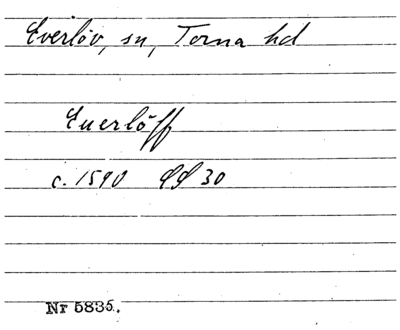 Everlöv, sn, Torna hd
Euerlöff
c. 1590 SS 30
Nr 5835.